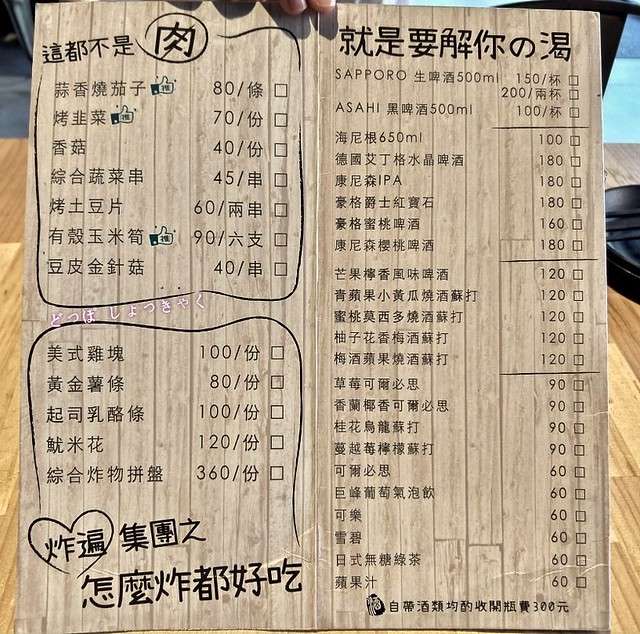 這都不是肉
蒜香燒茄子 推 80/條 □
烤韭菜 推 70/份 □
香菇 40/份 □
綜合蔬菜串 45/串 □
烤土豆片 60/兩串 □
有殼玉米筍 推 90/六支 □
豆皮金針菇 40/串 □
どっぱ しょっきゃく
美式雞塊 100/份 □
黃金薯條 80/份 □
起司乳酪條 100/份 □
魷米花 120/份 □
綜合炸物拼盤 360/份 □
炸遍集團之
怎麼炸都好吃
就是要解你の渴
SAPPORO 生啤酒500ml 150/杯 □
200/兩杯 □
ASAHI 黑啤酒500ml 100/杯 □
海尼根650ml 100 □
德國艾丁格水晶啤酒 180 □
康尼森IPA 180 □
豪格爵士紅寶石 180 □
豪格蜜桃啤酒 160 □
康尼森櫻桃啤酒 180 □
芒果檸香風味啤酒 120 □
青蘋果小黃瓜燒酒蘇打 120 □
蜜桃莫西多燒酒蘇打 120 □
柚子花香梅酒蘇打 120 □
梅酒蘋果燒酒蘇打 120 □
草莓可爾必思 90 □
香蘭椰香可爾必思 90 □
桂花烏龍蘇打 90 □
蔓越莓檸檬蘇打 90 □
可爾必思 60 □
巨峰葡萄氣泡飲 60 □
可樂 60 □
雪碧 60 □
日式無糖綠茶 60 □
蘋果汁 60 □
自帶酒類均酌收開瓶費300元